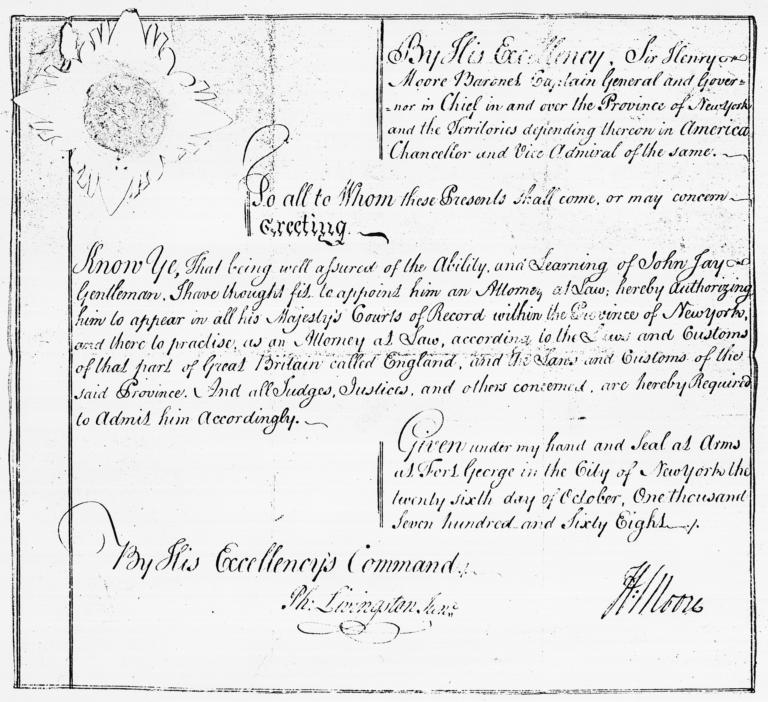 By His Excellency, Sir Henry
Moore Baronet Captain General and Gover=
=nor in Chief in and over the Province of New York
and the Territories depending thereon in America
Chancellor and Vice Admiral of the same.
To all to Whom these Presents shall come, or may concern
Greeting.
Know Ye, That being well assured of the Ability, and Learning of John Jay
Gentleman, I have thought fit to appoint him an Attorney at Law; hereby authorizing
him to appear in all his Majesty's Courts of Record within the Province of New York,
and there to practise, as an Attorney at Law, according to the Laws and Customs
of that part of Great Britain called England, and the Laws and Customs of the
said Province. And all Judges, Justices, and others concerned, are hereby Required
to Admit him Accordingly.
Given under my hand and Seal at Arms
at Fort George in the City of New York the
twenty sixth day of October, One thousand
Seven hundred and Sixty Eight
By His Excellency's Command
Ph: Livingston Junr.
H: Moore